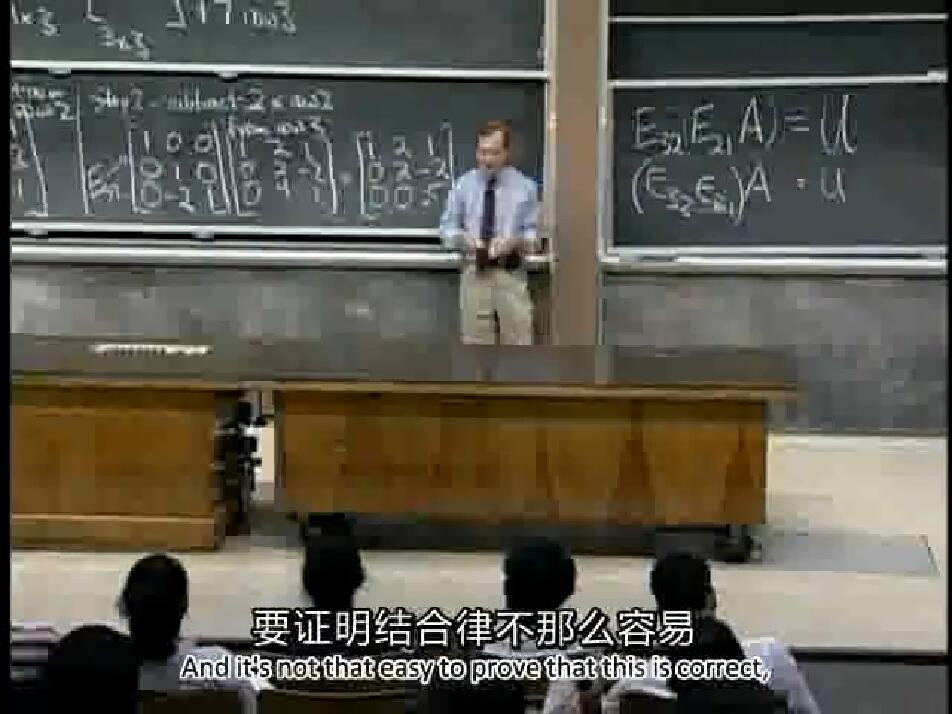 step 2 - subtract 2 x row 2
from row 3
1 0 0
0 1 0
0 -2 1
1 2 1
0 2 -2
0 4 1
=
1 2 1
0 2 -2
0 0 5
E₃₂(E₂₁A) = U
(E₃₂E₂₁)A = U
要证明结合律不那么容易
And it's not that easy to prove that this is correct,